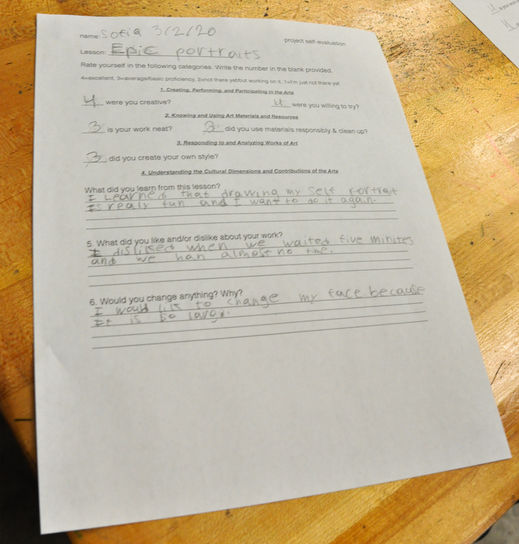 name: Sofia 3/2/20
project self-evaluation
Lesson: Epic portraits
Rate yourself in the following categories. Write the number in the blank provided.
4=excellent, 3=average/basic proficiency, 2=not there yet/but working on it, 1=I'm just not there yet
1. Creating, Performing, and Participating in the Arts
4 were you creative? 4 were you willing to try?
2. Knowing and Using Art Materials and Resources
3 is your work neat? 3 did you use materials responsibly & clean up?
3. Responding to and Analyzing Works of Art
3 did you create your own style?
4. Understanding the Cultural Dimensions and Contributions of the Arts
What did you learn from this lesson?
I Learned that drawing my self Portrait
Is realy fun and I want to do it again.
5. What did you like and/or dislike about your work?
I disliked when we waited five minites
and we han almost no time.
6. Would you change anything? Why?
I would like to change my face because
It is so large.